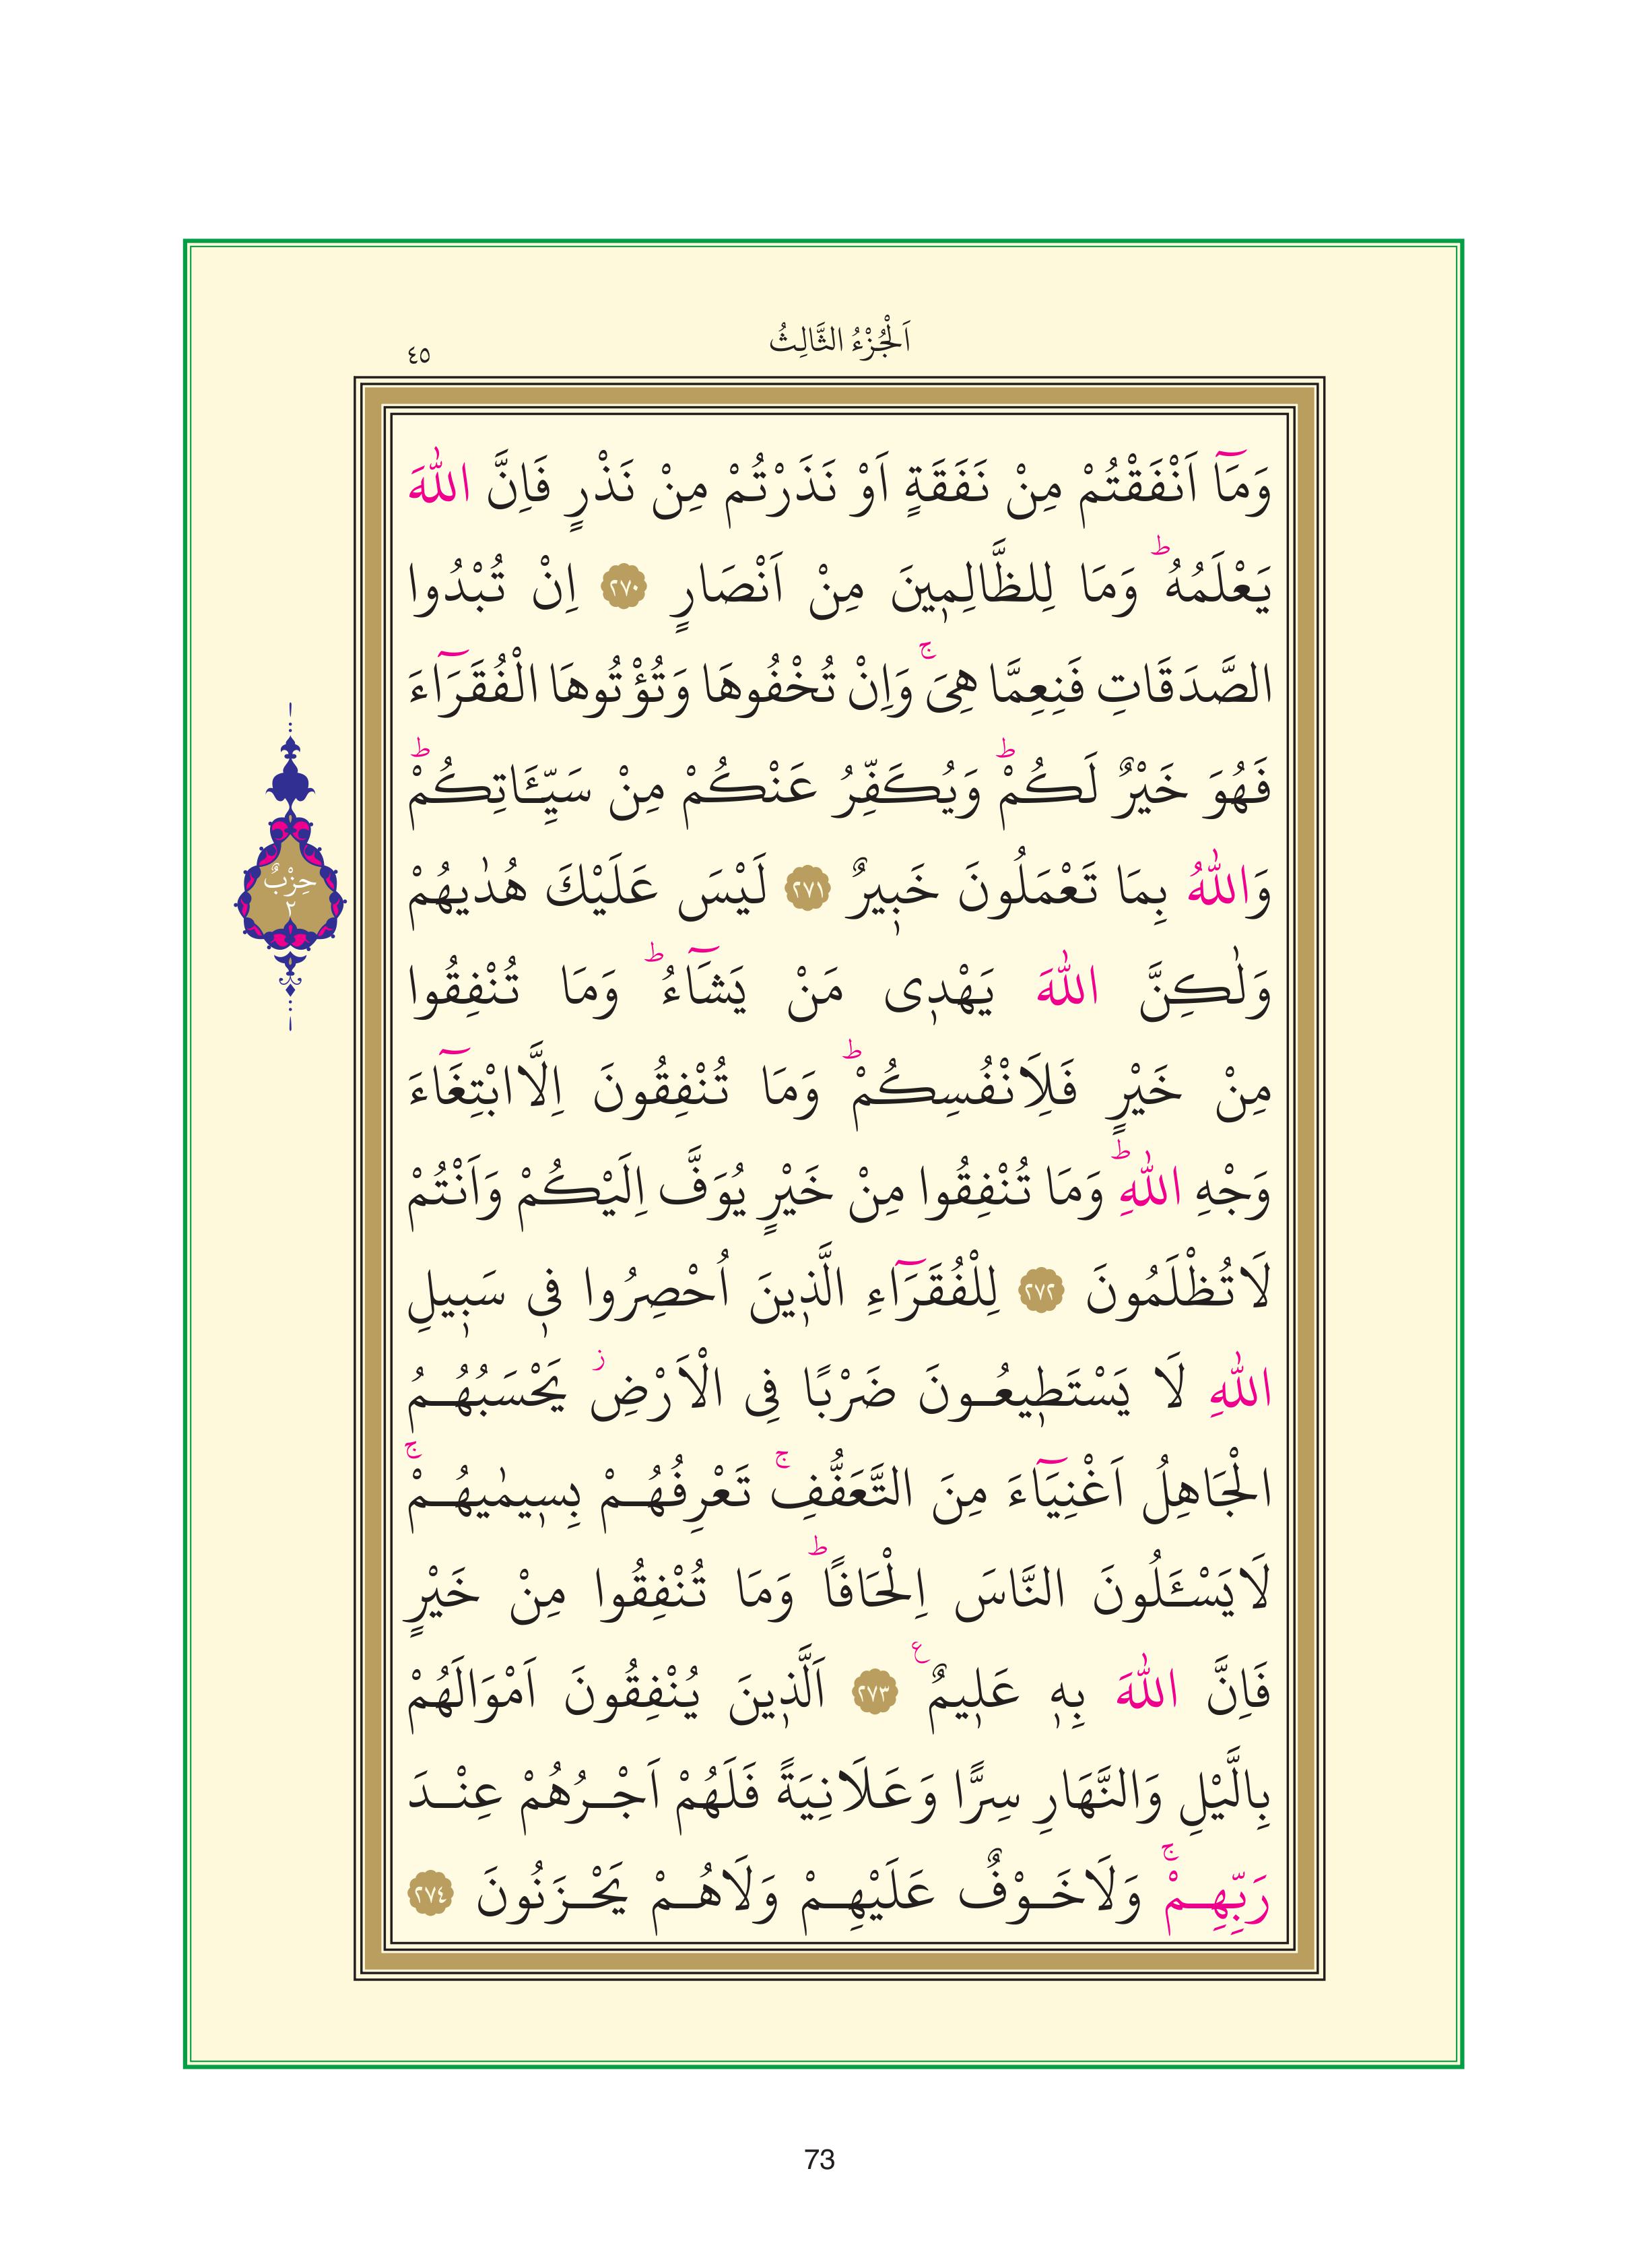 اَلْجُزْءُ الثَّالِثُ
٤٥
وَمَٓا اَنْفَقْتُمْ مِنْ نَفَقَةٍ اَوْ نَذَرْتُمْ مِنْ نَذْرٍ فَاِنَّ اللّٰهَ
يَعْلَمُهُۜ وَمَا لِلظَّالِم۪ينَ مِنْ اَنْصَارٍ ﴿٢٧٠﴾ اِنْ تُبْدُوا
الصَّدَقَاتِ فَنِعِمَّا هِىَۚ وَاِنْ تُخْفُوهَا وَتُؤْتُوهَا الْفُقَرَٓاءَ
فَهُوَ خَيْرٌ لَكُمْۜ وَيُكَفِّرُ عَنْكُمْ مِنْ سَيِّـَٔاتِكُمْۜ
وَاللّٰهُ بِمَا تَعْمَلُونَ خَب۪يرٌ ﴿٢٧١﴾ لَيْسَ عَلَيْكَ هُدٰيهُمْ
وَلٰكِنَّ اللّٰهَ يَهْد۪ى مَنْ يَشَٓاءُۜ وَمَا تُنْفِقُوا
مِنْ خَيْرٍ فَلِاَنْفُسِكُمْۜ وَمَا تُنْفِقُونَ اِلَّا ابْتِغَٓاءَ
وَجْهِ اللّٰهِۜ وَمَا تُنْفِقُوا مِنْ خَيْرٍ يُوَفَّ اِلَيْكُمْ وَاَنْتُمْ
لَا تُظْلَمُونَ ﴿٢٧٢﴾ لِلْفُقَرَٓاءِ الَّذ۪ينَ اُحْصِرُوا ف۪ى سَب۪يلِ
اللّٰهِ لَا يَسْتَط۪يعُونَ ضَرْبًا فِى الْاَرْضِۘ يَحْسَبُهُمُ
الْجَاهِلُ اَغْنِيَٓاءَ مِنَ التَّعَفُّفِۚ تَعْرِفُهُمْ بِس۪يمٰيهُمْۚ
لَا يَسْـَٔلُونَ النَّاسَ اِلْحَافًاۜ وَمَا تُنْفِقُوا مِنْ خَيْرٍ
فَاِنَّ اللّٰهَ بِه۪ عَل۪يمٌ ع ﴿٢٧٣﴾ اَلَّذ۪ينَ يُنْفِقُونَ اَمْوَالَهُمْ
بِالَّيْلِ وَالنَّهَارِ سِرًّا وَعَلَانِيَةً فَلَهُمْ اَجْرُهُمْ عِنْدَ
رَبِّهِمْۚ وَلَا خَوْفٌ عَلَيْهِمْ وَلَا هُمْ يَحْزَنُونَ ﴿٢٧٤﴾
حِزْبٌ
٢
73